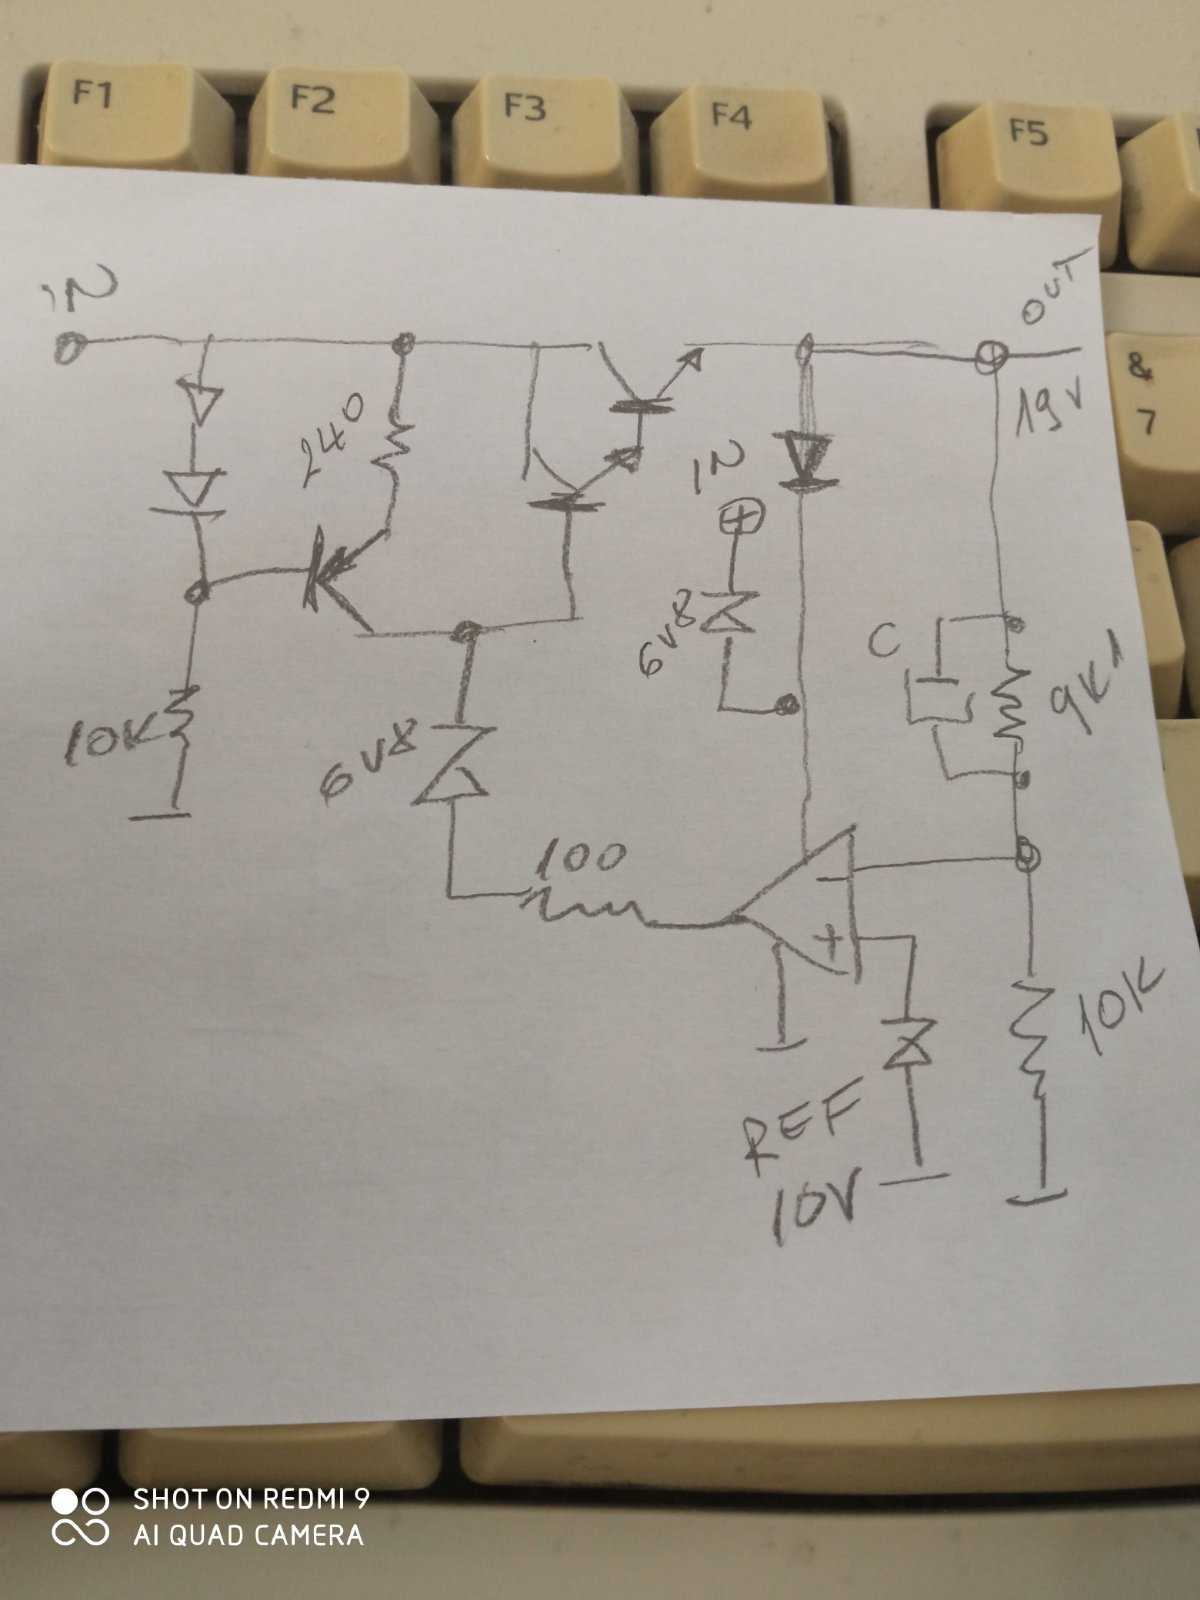 F1
F2
F3
F4
F5
&
7
IN
OUT
19V
240
IN
+
6V8
C
9K1
10K
6V8
100
-
+
10K
REF
10V
SHOT ON REDMI 9
AI QUAD CAMERA